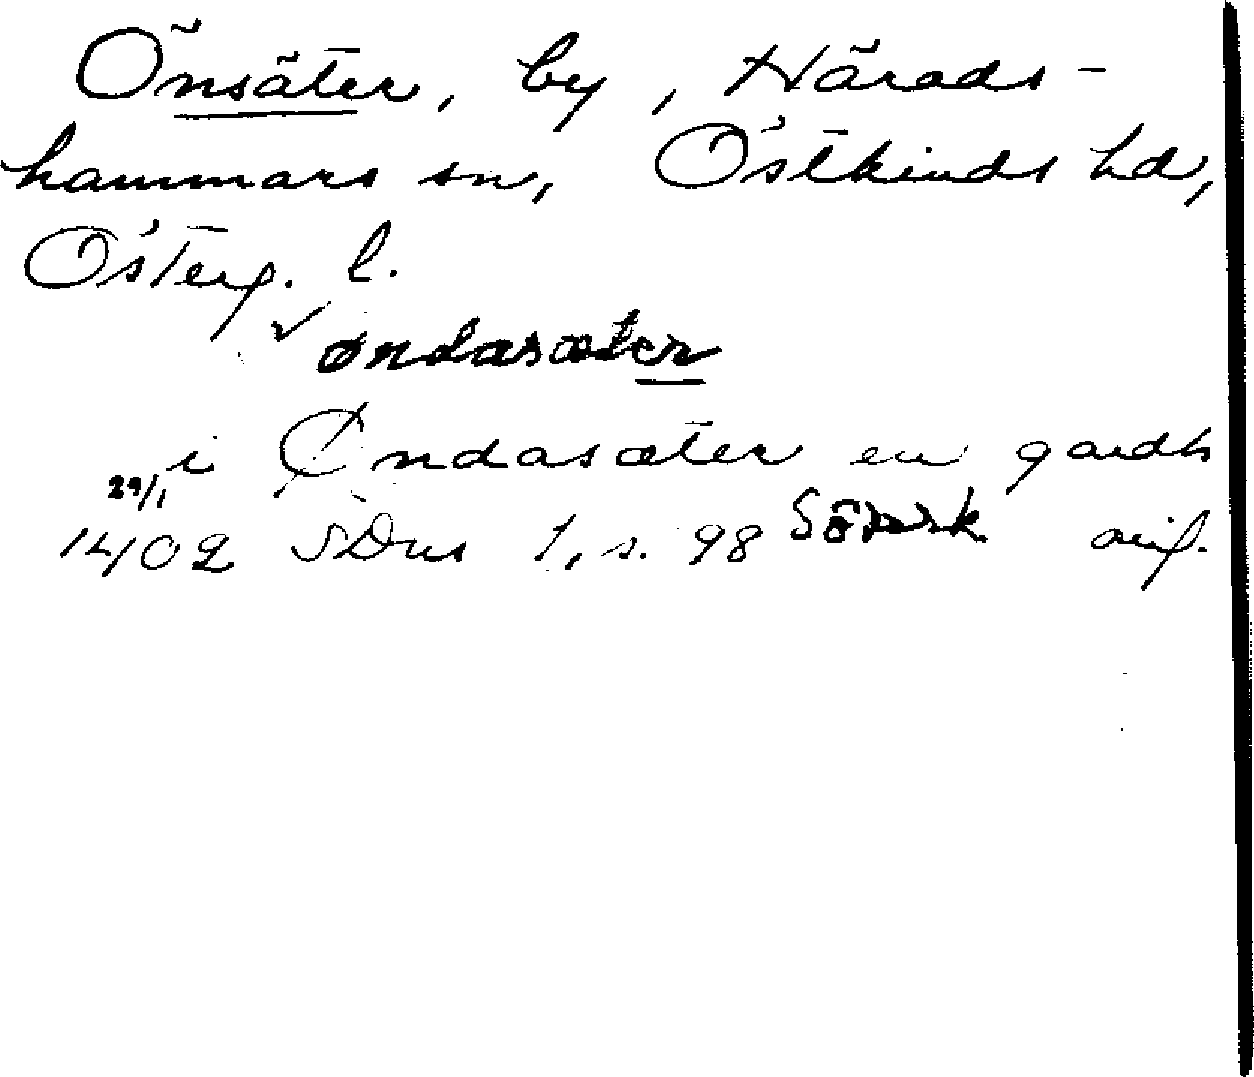 Önsäter, by, Härads-
hammars sn, Östkinds hd,
Österg. l.
✓ øndasæter
i Øndasæter en gardh
29/1 1402 SDns 1, s. 98 Söderk orig.